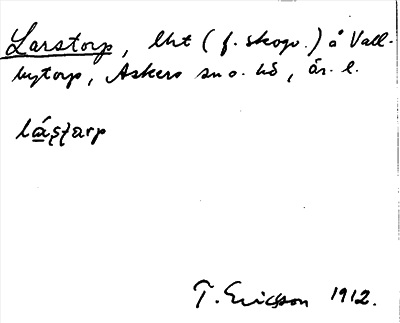 Larstorp, lht (f. skogv.) å Vall-
bytorp, Askers sn o. hd, ör. l.
láșțarp
T. Ericsson 1912.